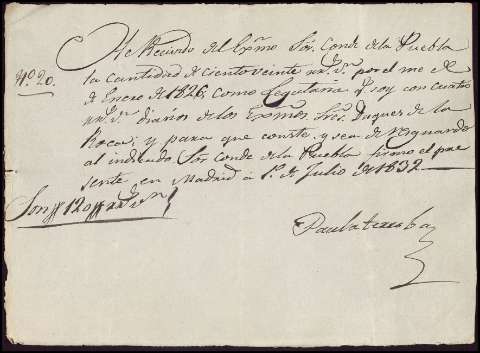 He Recivido del Exmo Sor. Conde de la Puebla
Nº. 20.
la cantidad de ciento veinte rrs. vn. por el mes de
de Enero de 1826, como Legataria qe. soy con cuatro
rrs. vn. diarios de los Exmos. Sres. Duques de la
Roca; y para que conste y sea de resguardo
al indicado Sor. Conde de la Puebla firmo el pre
sente en Madrid á 1º. de Julio de 1832
Son 120 rrs. vn
Paula